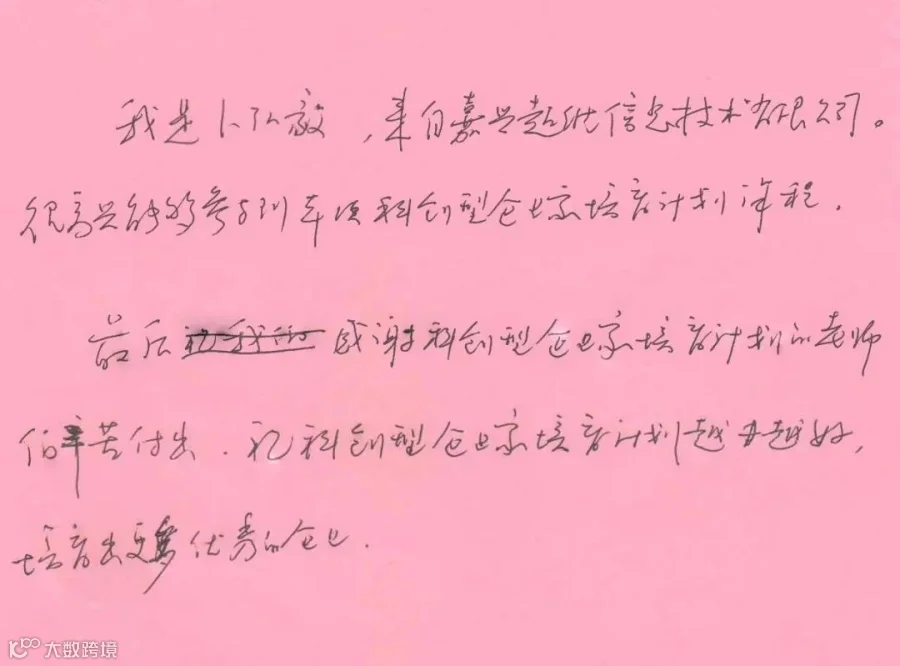 我是卜弘毅，来自嘉兴超维信息技术有限公司。
很高兴能够参与到本项科创型企业家培育计划课程.
最后 感谢科创型企业家培育计划的老师
们辛苦付出.祝科创型企业家培育计划越办越好,
培育出更多优秀的企业.
大数跨境